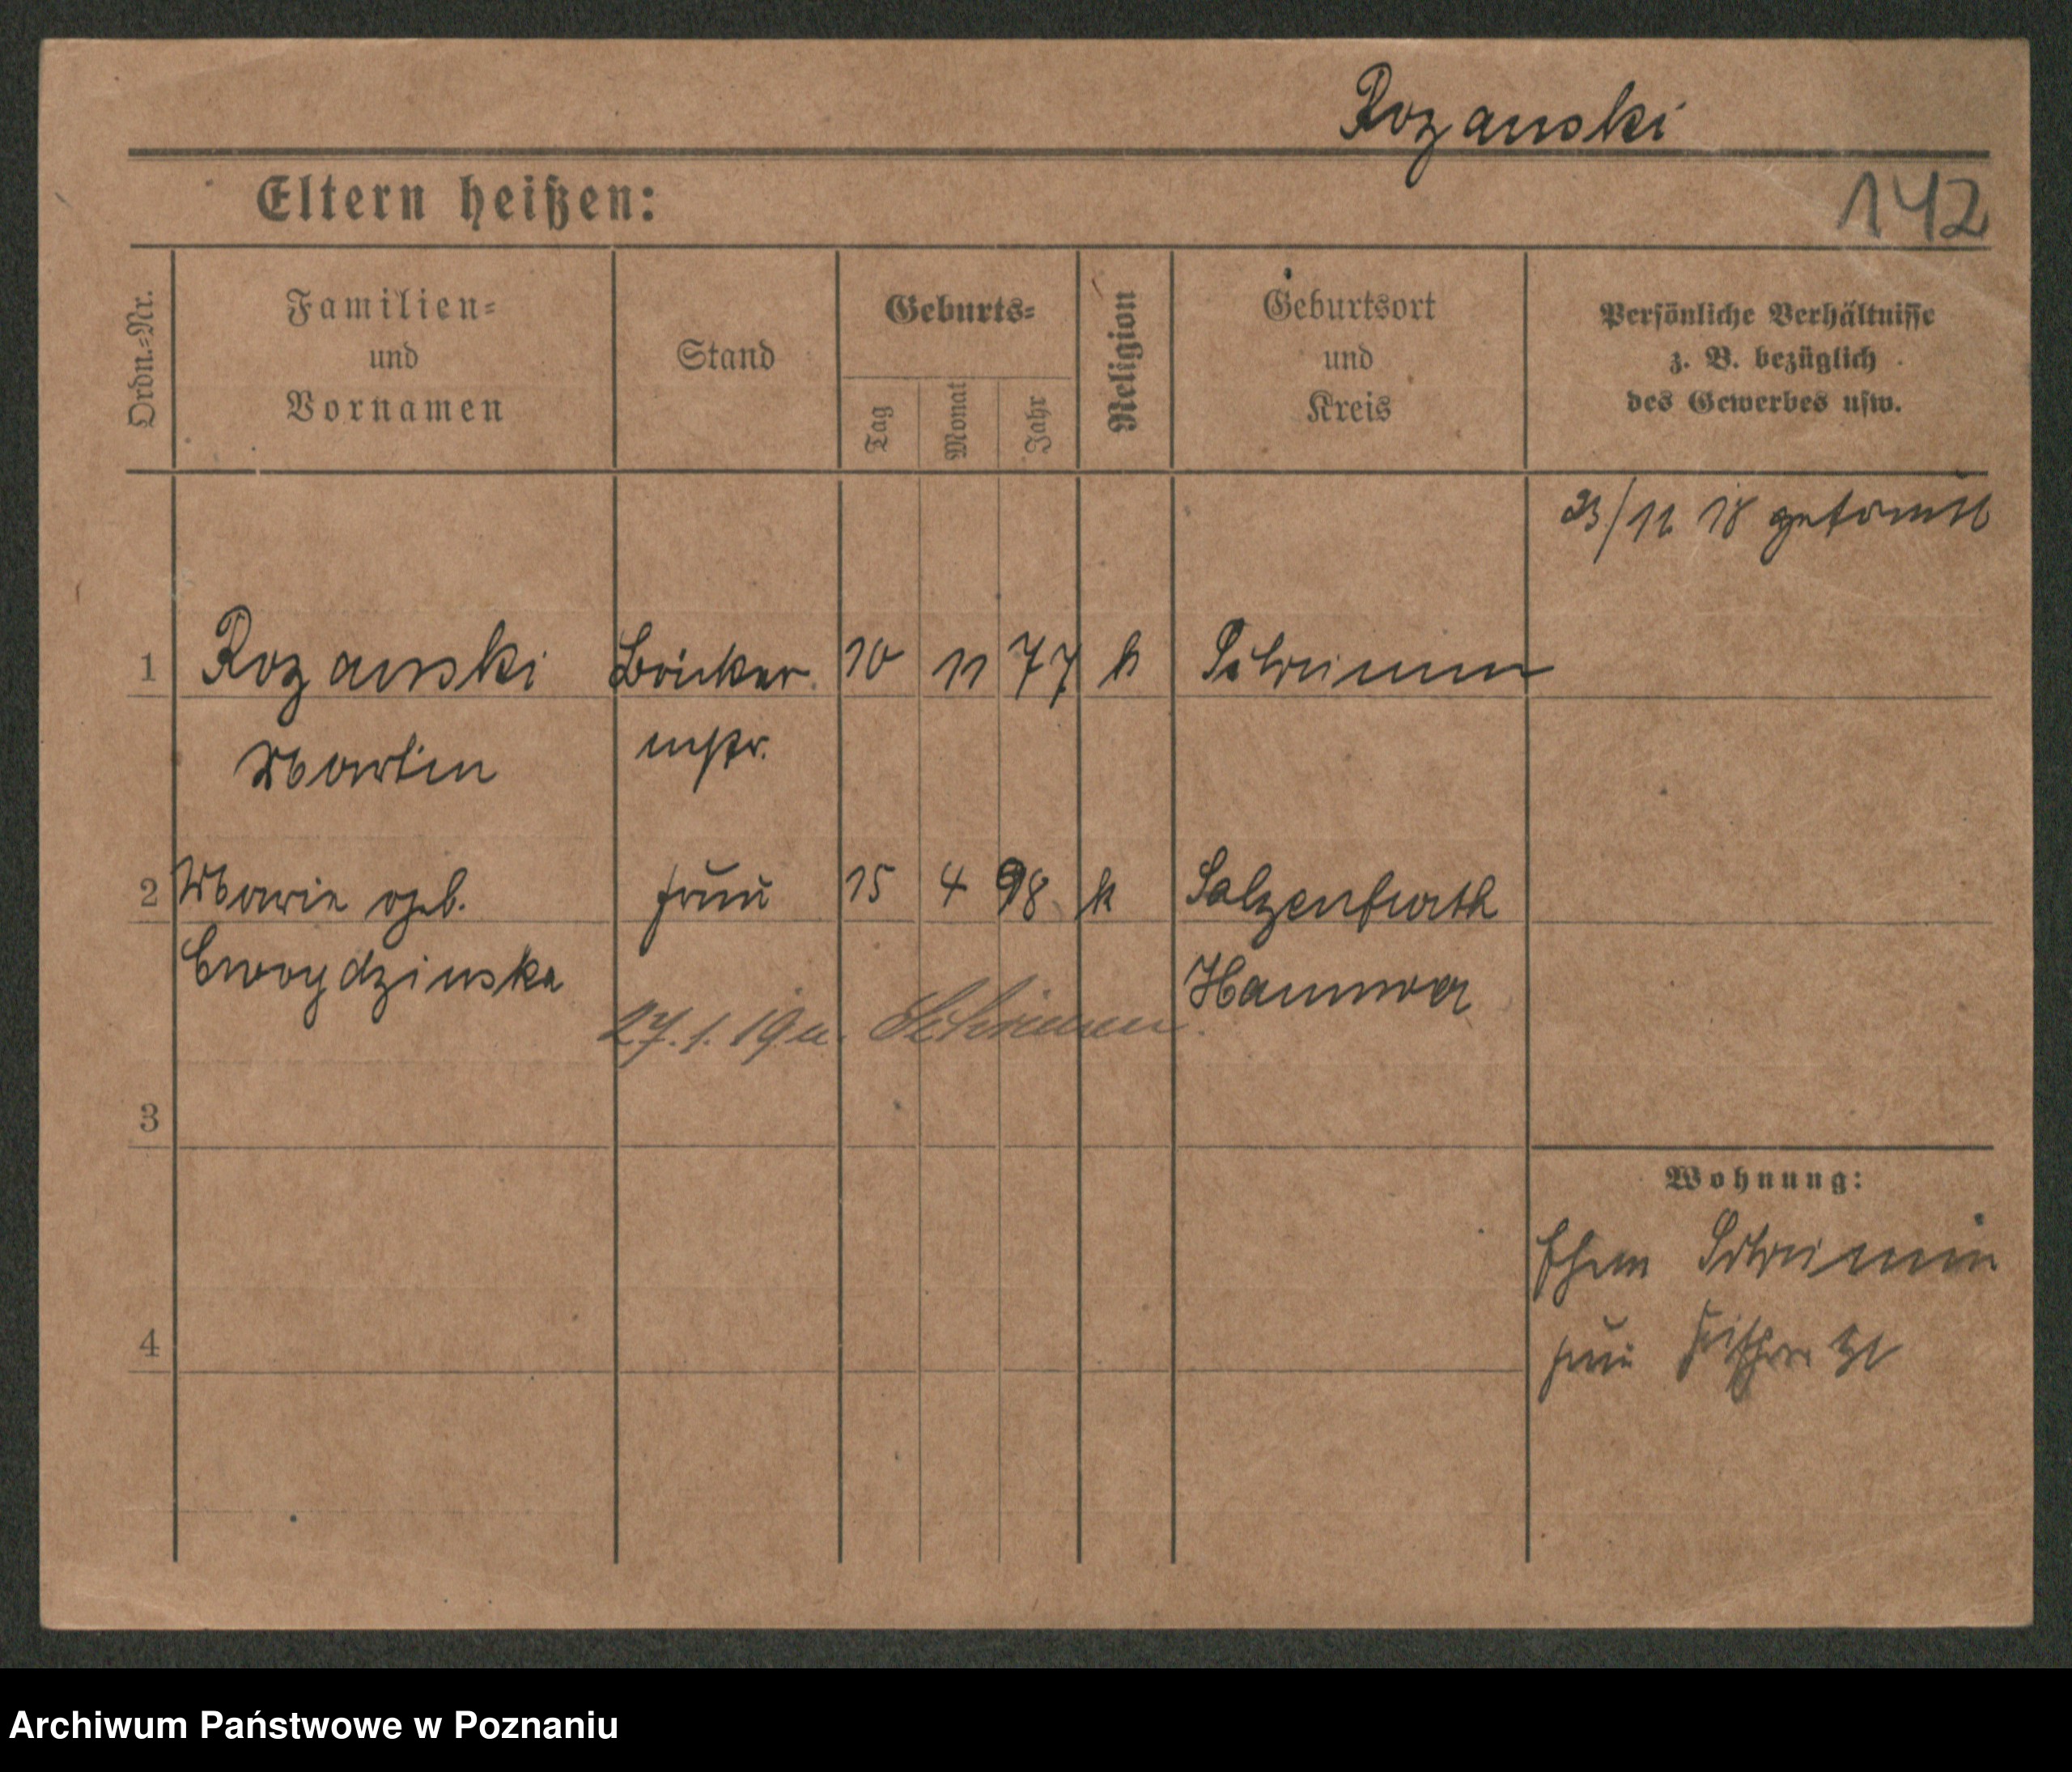 Rozanski
Eltern heißen:
142
Ordn.=Nr.
Familien=
und
Vornamen
Stand
Geburts=
Tag
Monat
Jahr
Religion
Geburtsort
und
Kreis
Persönliche Verhältnisse
z. B. bezüglich
des Gewerbes usw.
23/11 18 getraut
1 Rozanski Bäcker 10 11 77 k Schrimm
Martin mstr.
2 Marie geb. Frau 15 4 98 k Salzenfurth
Cwoydzinska Hannover
27.1.19 n. Schrimm.
3
Wohnung:
Ehem Schrimm
4
Frau